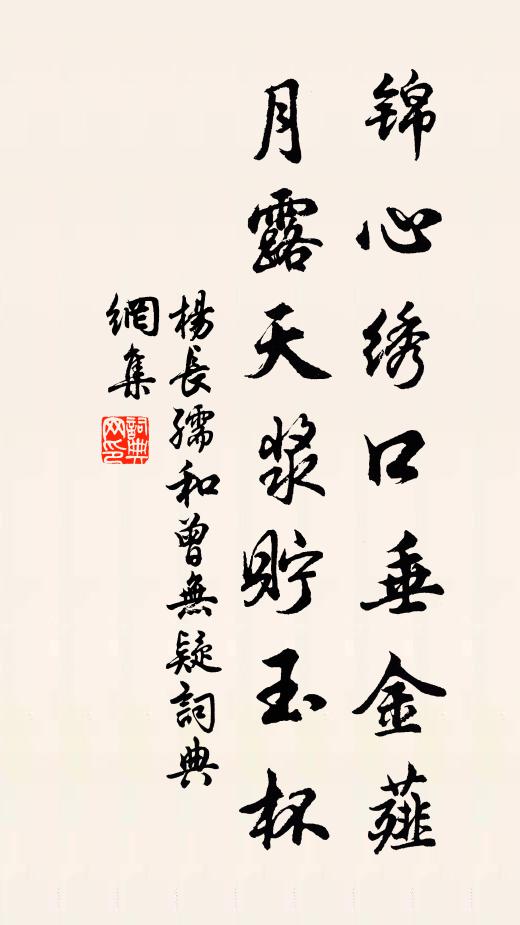 锦心绣口垂金薤
月露天浆貯玉杯
楊長孺和曾無疑詞典
網集
詞典網印